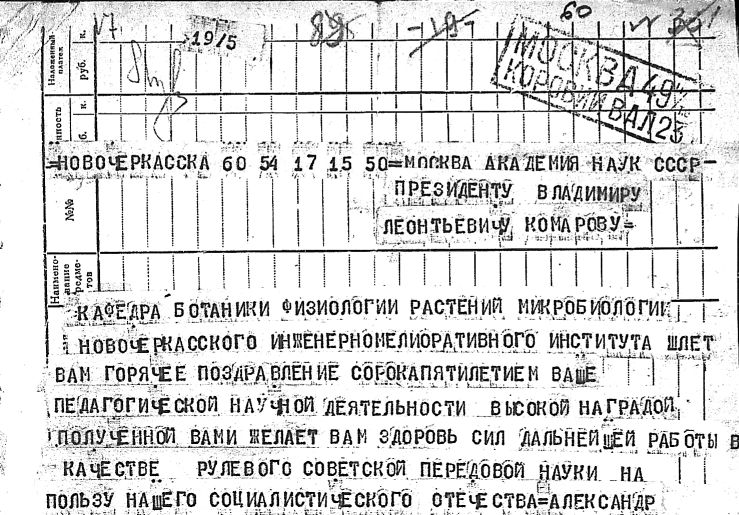 19/5 89 -19- 60
МОСКВА 49
КОРОВИЙ ВАЛ 23
Наложенный платеж руб. к.
ность б. к.
=НОВОЧЕРКАССКА 60 54 17 15 50=МОСКВА АКАДЕМИЯ НАУК СССР-
ПРЕЗИДЕНТУ ВЛАДИМИРУ
№№
ЛЕОНТЬЕВИЧУ КОМАРОВУ=
Наимено-
вание
предме-
тов
КАФЕДРА БОТАНИКИ ФИЗИОЛОГИИ РАСТЕНИЙ МИКРОБИОЛОГИИ
НОВОЧЕРКАССКОГО ИНЖЕНЕРНОМЕЛИОРАТИВНОГО ИНСТИТУТА ШЛЕТ
ВАМ ГОРЯЧЕЕ ПОЗДРАВЛЕНИЕ СОРОКАПЯТИЛЕТИЕМ ВАШЕ
ПЕДАГОГИЧЕСКОЙ НАУЧНОЙ ДЕЯТЕЛЬНОСТИ ВЫСОКОЙ НАГРАДОЙ
ПОЛУЧЕННОЙ ВАМИ ЖЕЛАЕТ ВАМ ЗДОРОВЬ СИЛ ДАЛЬНЕЙШЕЙ РАБОТЫ В
КАЧЕСТВЕ РУЛЕВОГО СОВЕТСКОЙ ПЕРЕДОВОЙ НАУКИ НА
ПОЛЬЗУ НАШЕГО СОЦИАЛИСТИЧЕСКОГО ОТЕЧЕСТВА=АЛЕКСАНДР